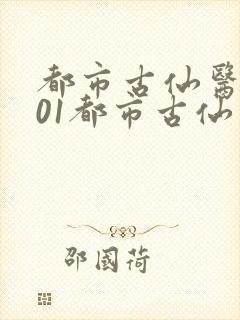 都市古仙醫
01都市古仙
邵國荷